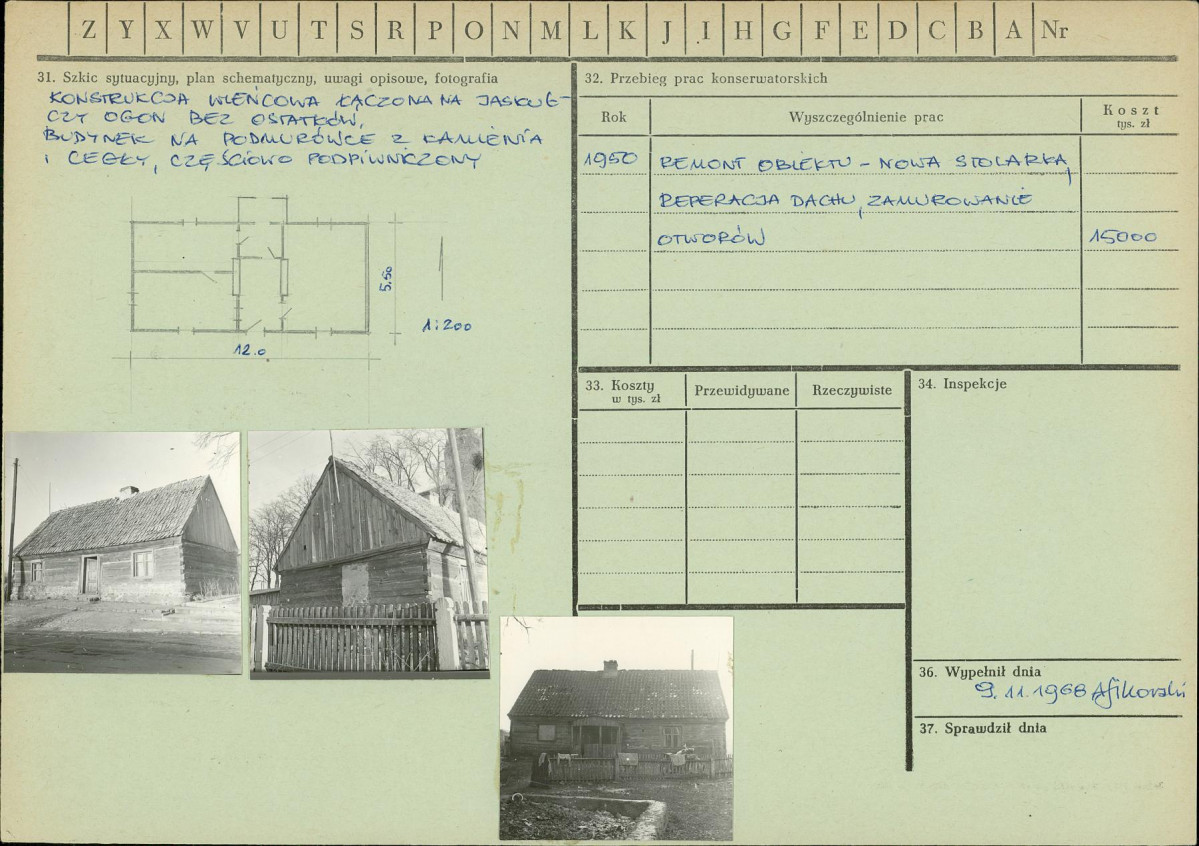 Z Y X W V U T S R P O N M L K J I H G F E D C B A Nr
31. Szkic sytuacyjny, plan schematyczny, uwagi opisowe, fotografia
KONSTRUKCJA WIEŃCOWA ŁĄCZONA NA JASKÓŁ-
CZY OGON BEZ OSTATKÓW,
BUDYNEK NA PODMURÓWCE Z KAMIENIA
I CEGŁY, CZĘŚCIOWO PODPIWNICZONY
5.50
1:200
12.0
32. Przebieg prac konserwatorskich
Rok
Wyszczególnienie prac
Koszt
tys. zł
1950
REMONT OBIEKTU - NOWA STOLARKA,
REPERACJA DACHU, ZAMUROWANIE
OTWORÓW
15000
33. Koszty
w tys. zł
Przewidywane
Rzeczywiste
34. Inspekcje
36. Wypełnił dnia
9.11.1968
37. Sprawdził dnia